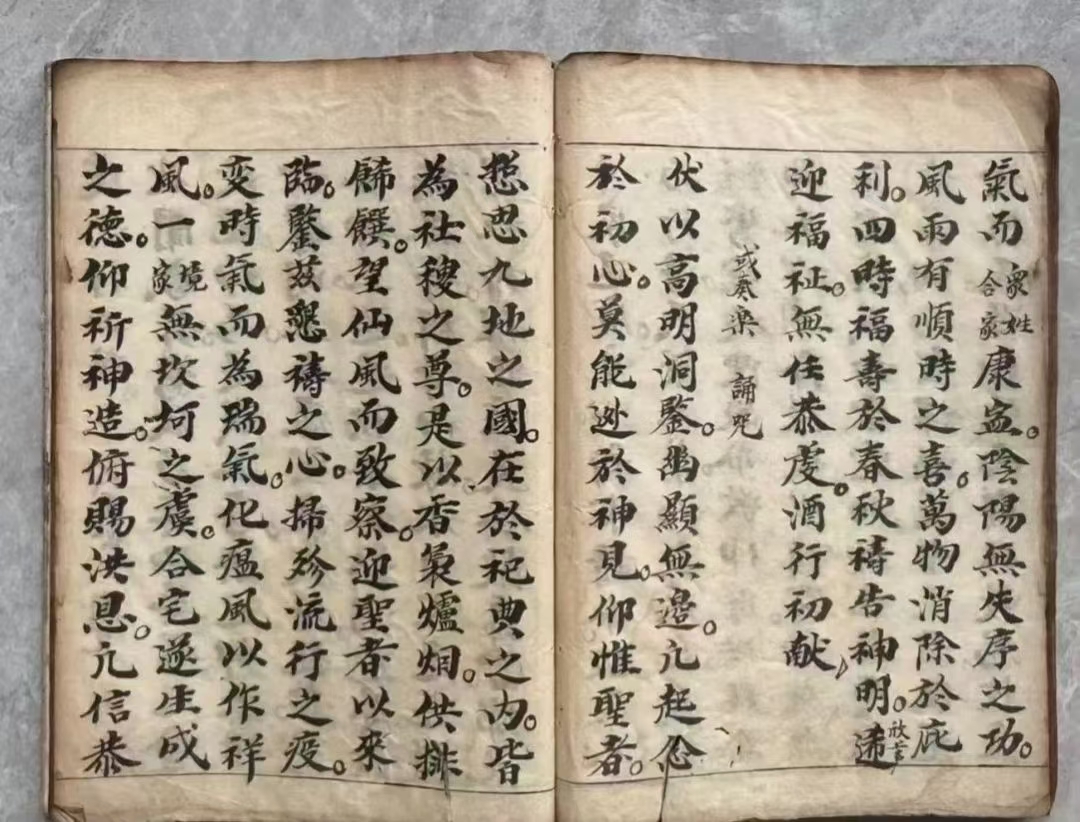 氣而衆姓合家康寍。陰陽無失序之功。
風雨有順時之喜。萬物消除於庇
利。四時福壽於春秋禱告神明。
迎福祉。無任恭虔。酒行初献
或奏楽 誦咒
伏以高明洞鑒。幽顯無邉。凢起念
於初心。莫能迯於神見。仰惟聖者。
思九地之國。在於祀典之内。皆
為社稷之尊。是以香裊爐烟。供排
餚饌。望仙風而致察。迎聖者以來
臨。鑒茲懇禱之心。掃疹流行之疫。
变時氣而為瑞氣。化瘟風以作祥
風。一境家無坎坷之虞。合宅遂生成
之德。仰祈神造。俯賜洪恩。凢信恭